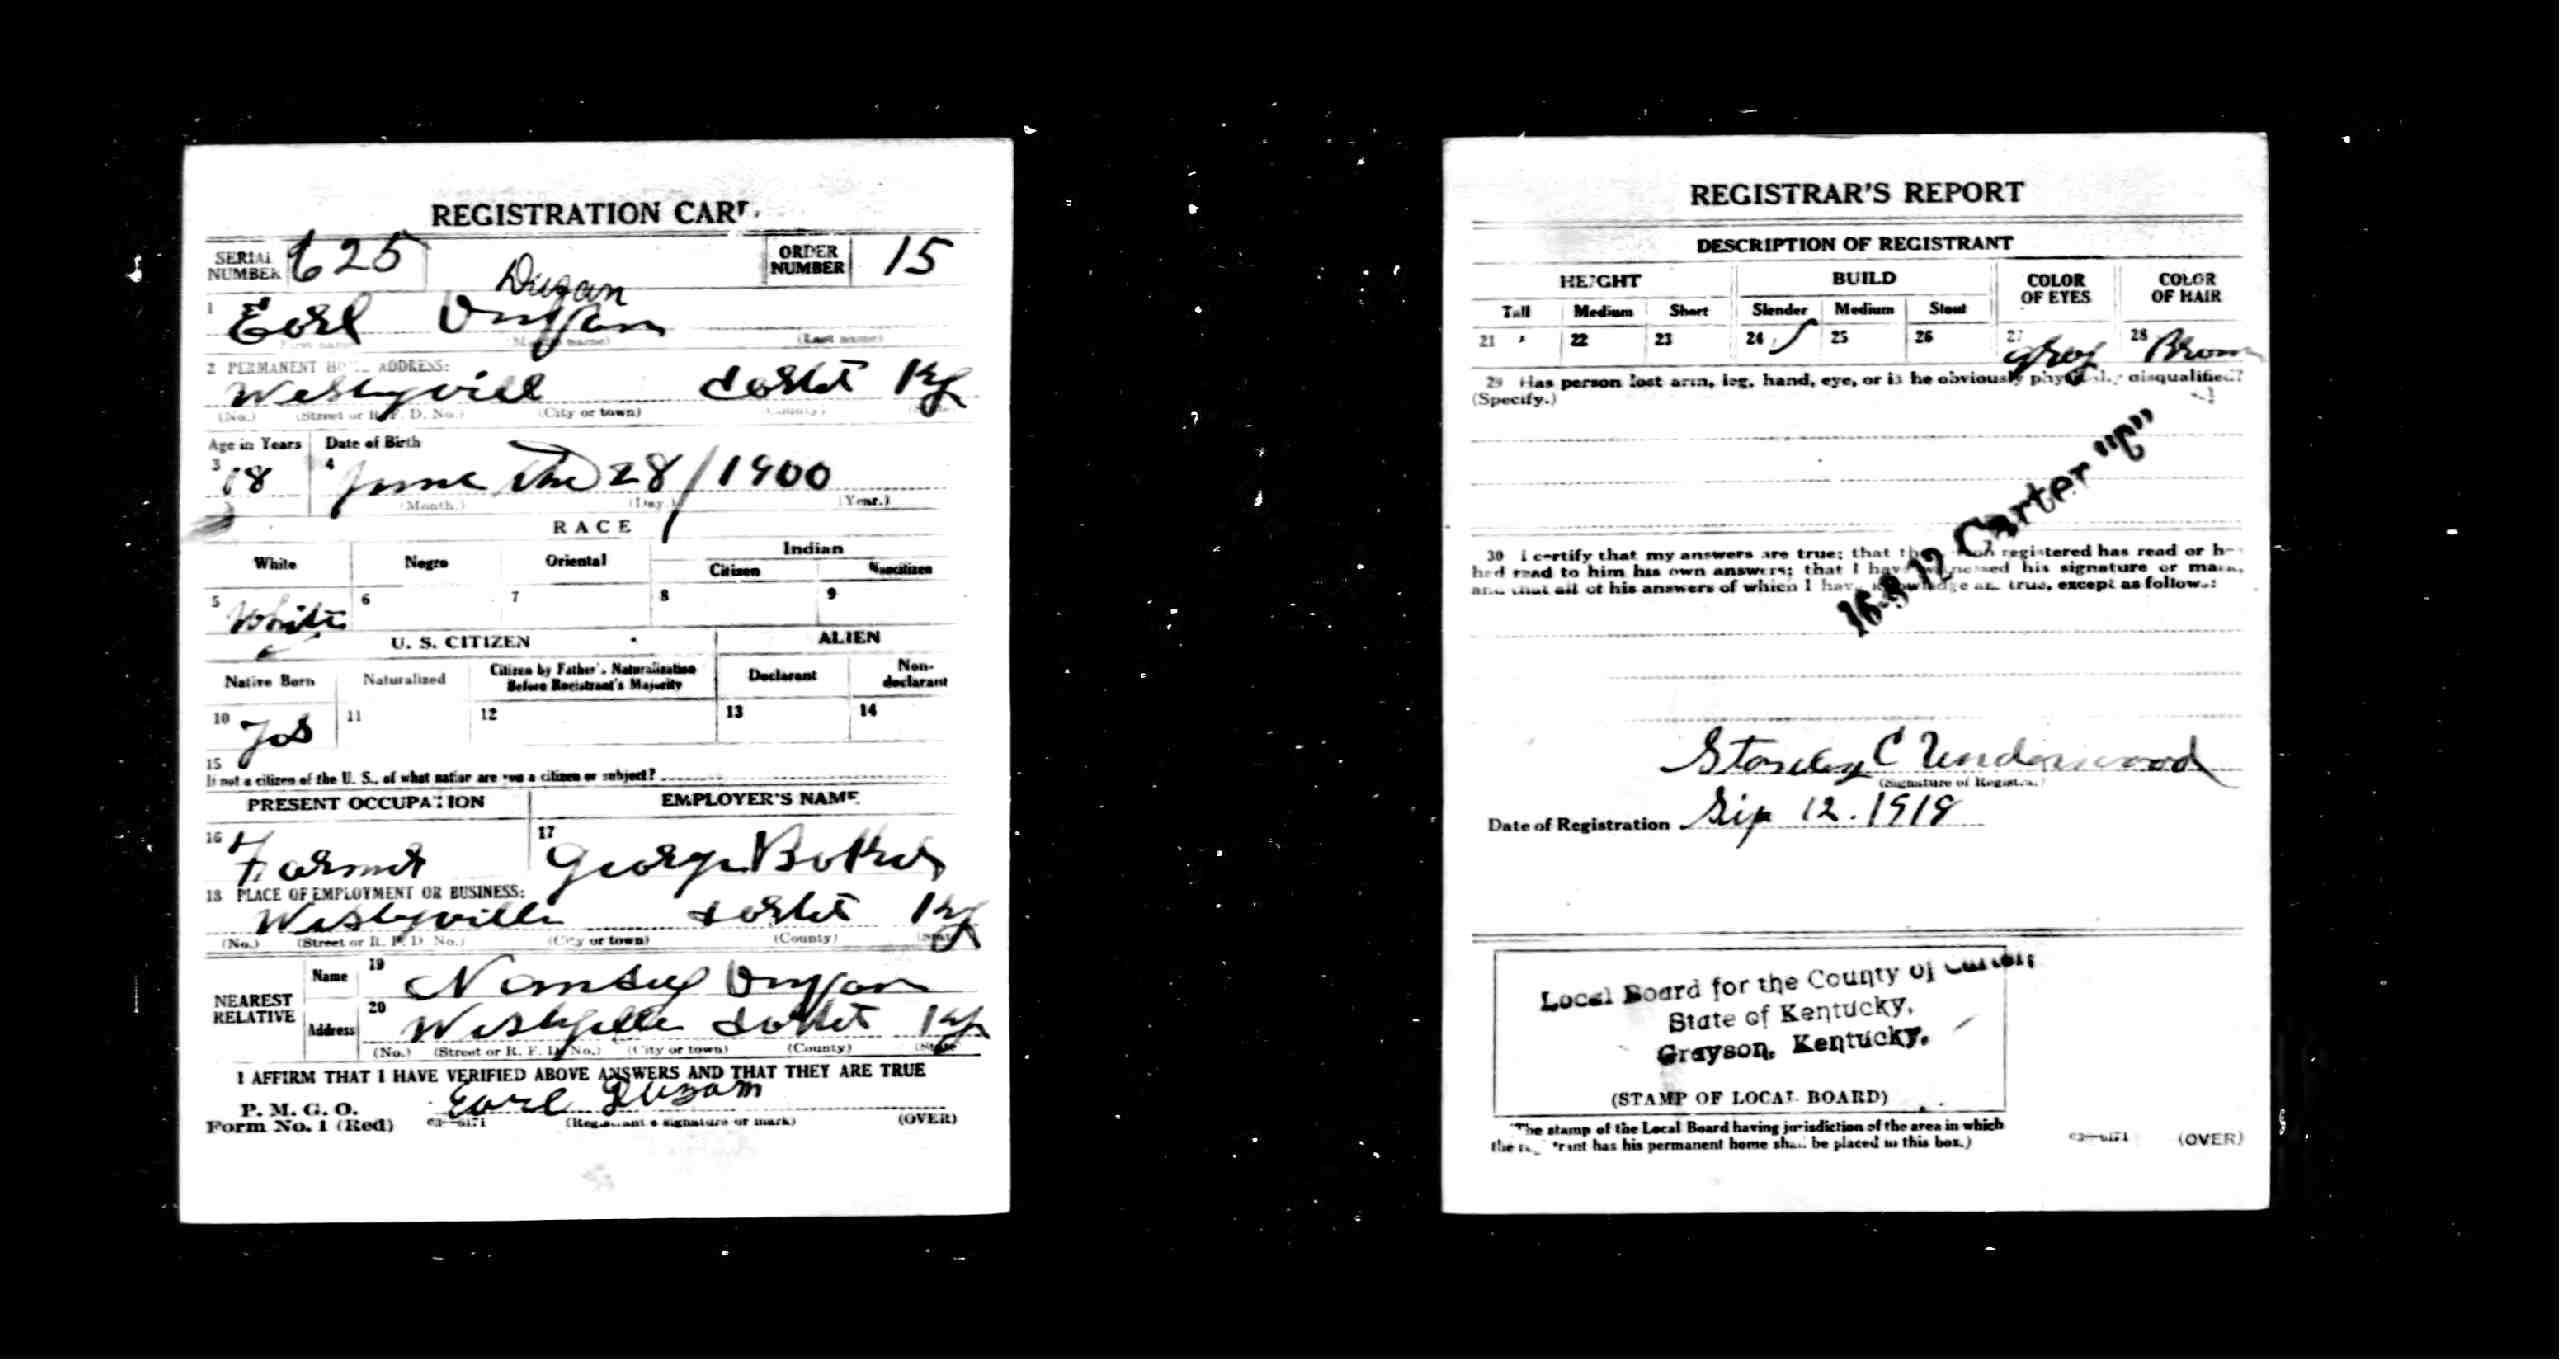 REGISTRATION CARD
SERIAL NUMBER 625
ORDER NUMBER 15
Duzan
1 Earl
(First name) (Middle name) (Last name)
2 PERMANENT HOME ADDRESS:
Wesleyvill Carter Ky
(No.) (Street or R. F. D. No.) (City or town) (County) (State)
Age in Years Date of Birth
3 18 4 June the 28/1900
(Month.) (Day.) (Year.)
RACE
White Negro Oriental Indian
Citizen Noncitizen
5 White 6 7 8 9
U. S. CITIZEN ALIEN
Native Born Naturalized Citizen by Father's Naturalization Before Registrant's Majority Declarant Non-declarant
10 Yes 11 12 13 14
15
If not a citizen of the U. S., of what nation are you a citizen or subject?
PRESENT OCCUPATION EMPLOYER'S NAME
16 Farmer 17 George
18 PLACE OF EMPLOYMENT OR BUSINESS:
Wesleyville Carter Ky
(No.) (Street or R. F. D. No.) (City or town) (County) (State)
NEAREST RELATIVE
Name 19
Address 20 Carter Ky
(No.) (Street or R. F. D. No.) (City or town) (County) (State)
I AFFIRM THAT I HAVE VERIFIED ABOVE ANSWERS AND THAT THEY ARE TRUE
P. M. G. O.
Form No. 1 (Red) 03—6171 Earl Duzam
(Registrant's signature or mark) (OVER)
REGISTRAR'S REPORT
DESCRIPTION OF REGISTRANT
HEIGHT BUILD COLOR OF EYES COLOR OF HAIR
Tall Medium Short Slender Medium Stout
21 22 23 24 25 26 27 Gray 28 Brown
29 Has person lost arm, leg, hand, eye, or is he obviously physically disqualified?
(Specify.)
16-3-12 Carter "C"
30 I certify that my answers are true; that the person registered has read or has
had read to him his own answers; that I have witnessed his signature or mark,
and that all of his answers of which I have knowledge are true, except as follows:
Stanley C Underwood
(Signature of Registrar)
Date of Registration Sep 12. 1918
Local Board for the County of Carter,
State of Kentucky,
Grayson, Kentucky.
(STAMP OF LOCAL BOARD)
(The stamp of the Local Board having jurisdiction of the area in which
the registrant has his permanent home shall be placed in this box.)
03—6171 (OVER)